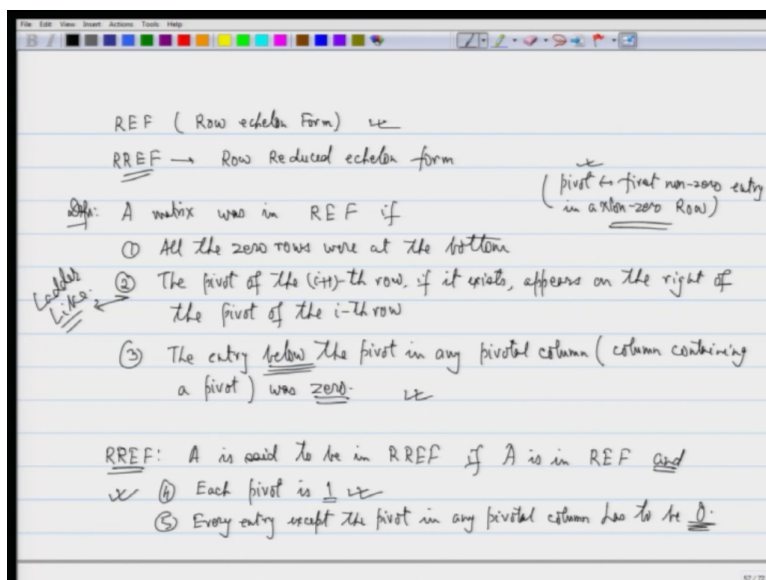 File Edit View Insert Actions Tools Help
REF ( Row echelon Form)
RREF → Row Reduced echelon form
( pivot ↔ first non-zero entry
in a Non-zero Row )
Defn: A matrix was in REF if
① All the zero rows were at the bottom
② The pivot of the (i+1)-th row, if it exists, appears on the right of
the pivot of the i-th row
Ladder
Like
③ The entry below the pivot in any pivotal column ( column containing
a pivot ) was zero.
RREF: A is said to be in RREF if A is in REF and
④ Each pivot is 1
⑤ Every entry except the pivot in any pivotal column has to be 0.